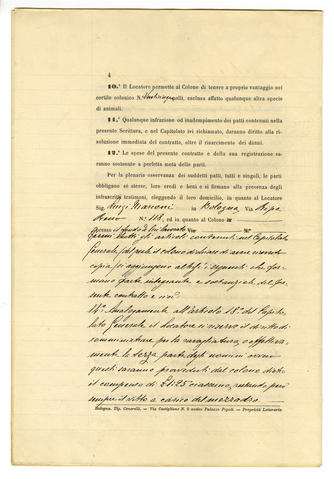 4
10.º Il Locatore permette al Colono di tenere a proprio vantaggio nel
cortile colonico N. polli, esclusa affatto qualunque altra specie
di animali.
11.º Qualunque infrazione od inadempimento dei patti contenuti nella
presente Scrittura, e nel Capitolato ivi richiamato, daranno diritto alla ri-
soluzione immediata del contratto, oltre il risarcimento dei danni.
12.º Le spese del presente contratto e della sua registrazione sa-
ranno sostenute a perfetta metà delle parti.
Per la plenaria osservanza dei suddetti patti, tutti e singoli, le parti
obbligano sè stesse, loro eredi e beni e si firmano alla presenza degli
infrascritti testimoni, eleggendo di loro domicilio, in quanto al Locatore
Sig. Luigi in Bologna Via Ripa
Reno N.º 118, ed in quanto al Colono in
presso il fondo Via N.º
Fermi tutti gli articoli contenuti nel Capitolato
Generale, del quale il colono dichiara di avere avuto
copia, si aggiungono altresì i seguenti che for-
mano parte integrante e sostanziale del pre-
sente contratto e cioè
14.º Analogamente all'articolo 18.º del Capito-
lato Generale il locatore si riserva il diritto di
somministrare per la o effettiva-
mente la terza parte degli uomini ovvero
questi saranno provveduti dal colono dietro
il compenso di £ 1.25 ciascuno, restando per
sempre il vitto a carico del mezzadro
Bologna. Tip. Cenerelli. — Via Castiglione N. 8 sotto Palazzo Pepoli. — Proprietà Letteraria